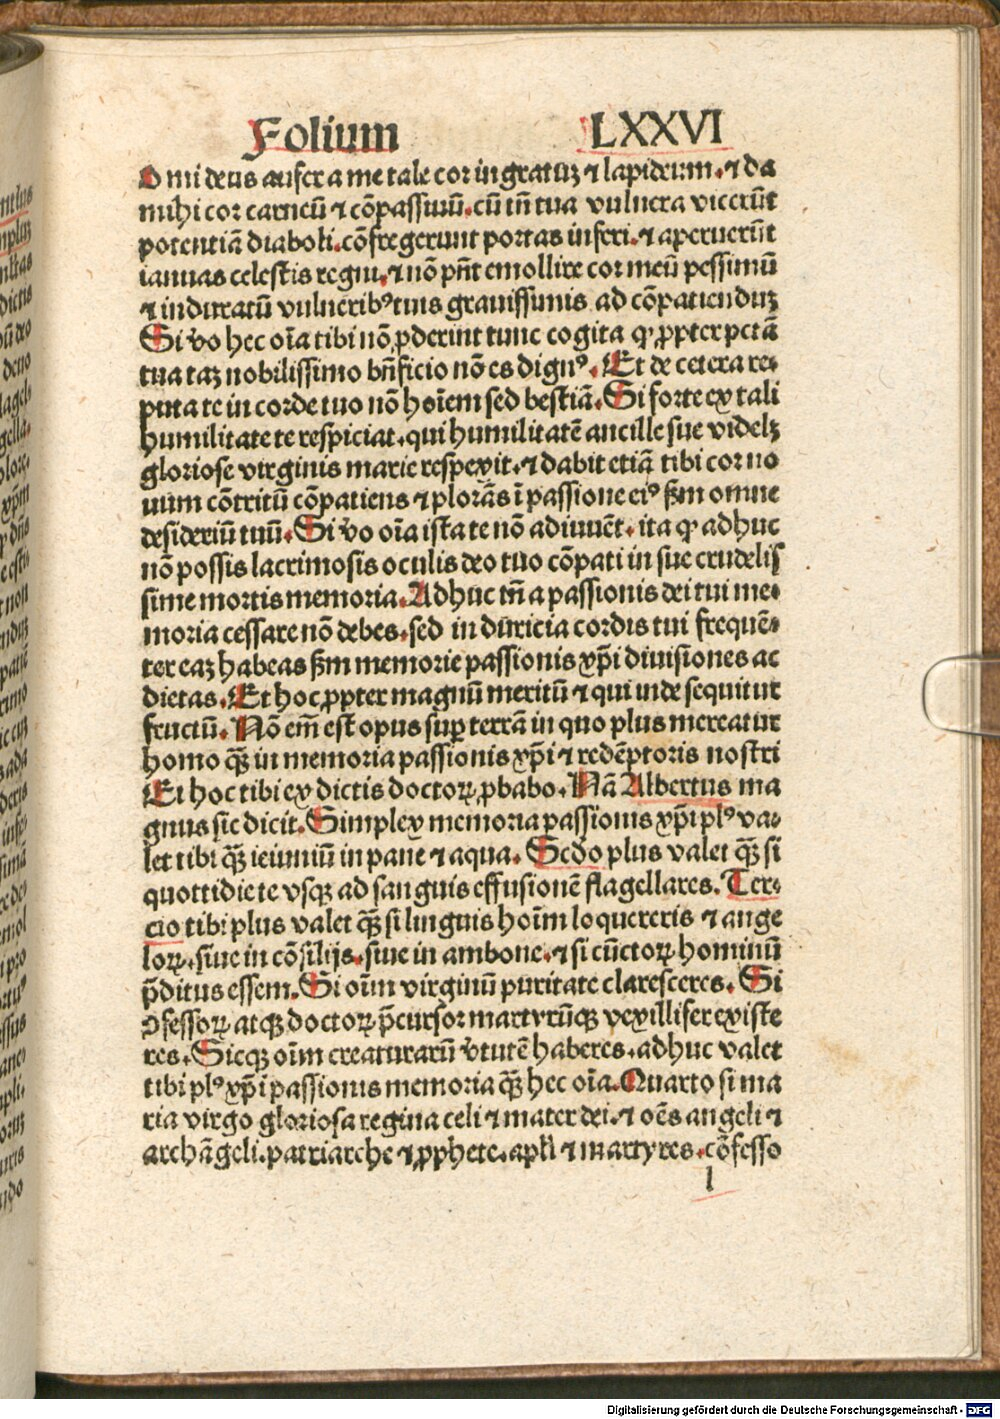 Folium LXXVI
O mi deus aufer a me tale cor ingratuꝫ ⁊ lapideum. ⁊ da
mihi cor carneū ⁊ cōpassiuū. cū tñ tua vulnera vicerūt
potentiā diaboli. cōfregerunt portas inferi. ⁊ aperuerūt
ianuas celestis regni. ⁊ nō pñt emollire cor meū pessimū
⁊ induratū vulneribꝰ tuis grauissimis ad cōpatienduꝫ
Si v̄o hec oīa tibi nō ꝓderint tunc cogita ꝙ ꝓpter pctā
tua taꝫ nobilissimo bñficio nō es dignꝰ. Et de cetera re⸗
puta te in corde tuo nō hoīem sed bestiā. Si forte ex tali
humilitate te respiciat. qui humilitatē ancille sue videlꝫ
gloriose virginis marie respexit. ⁊ dabit etiā tibi cor no
uum cōtritū cōpatiens ⁊ plorās ī passione eiꝰ ẜm omne
desideriū tuū. Si v̄o oīa ista te nō adiuuēt. ita ꝙ adhuc
nō possis lacrimosis oculis deo tuo cōpati in sue crudelis
sime mortis memoria. Adhuc tñ a passionis dei tui me⸗
moria cessare nō debes. sed in duricia cordis tui frequē⸗
ter eaꝫ habeas ẜm memorie passionis xp̄i diuisiones ac
dietas. Et hoc ꝓpter magnū meritū ⁊ qui inde sequitur
fructū. Nō em̄ est opus suꝑ terrā in quo plus mereatur
homo qꝫ̄ in memoria passionis xp̄i ⁊ redēptoris nostri
Et hoc tibi ex dictis doctoꝝ ꝓbabo. Nā Albertus ma
gnus sic dicit. Simplex memoria passionis xp̄i plꝰ va⸗
let tibi qꝫ̄ ieiuniū in pane ⁊ aqua. Scd̄o plus valet qꝫ̄ si
quottidie te vsqꝫ ad sanguis effusionē flagellares. Ter⸗
cio tibi plus valet qꝫ̄ si linguis hoīm loquereris ⁊ ange
loꝝ. siue in cōsilijs. siue in ambone. ⁊ si cūctoꝝ hominū
p̄ditus essem. Si oīm virginū puritate claresceres. Si
ꝯfessoꝝ atqꝫ doctoꝝ p̄cursor martyrūqꝫ vexillifer existe
res. Sicqꝫ oīm creaturarū v̄tutē haberes. adhuc valet
tibi plꝰ xp̄i passionis memoria qꝫ̄ hec oīa. Quarto si ma
ria virgo gloriosa regina celi ⁊ mater dei. ⁊ oēs angeli ⁊
archāgeli. patriarche ⁊ ꝓphete. apl̄i ⁊ martyres. cōfesso
l
Digitalisierung gefördert durch die Deutsche Forschungsgemeinschaft - DFG